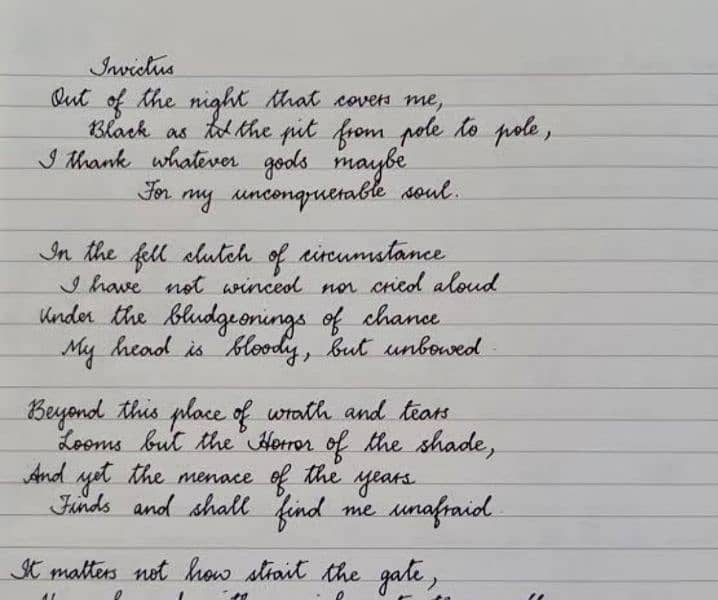 Invictus
Out of the night that covers me,
Black as the pit from pole to pole,
I thank whatever gods maybe
For my unconquerable soul.
In the fell clutch of circumstance
I have not winced nor cried aloud
Under the bludgeonings of chance
My head is bloody, but unbowed.
Beyond this place of wrath and tears
Looms but the Horror of the shade,
And yet the menace of the years
Finds and shall find me unafraid.
It matters not how strait the gate,